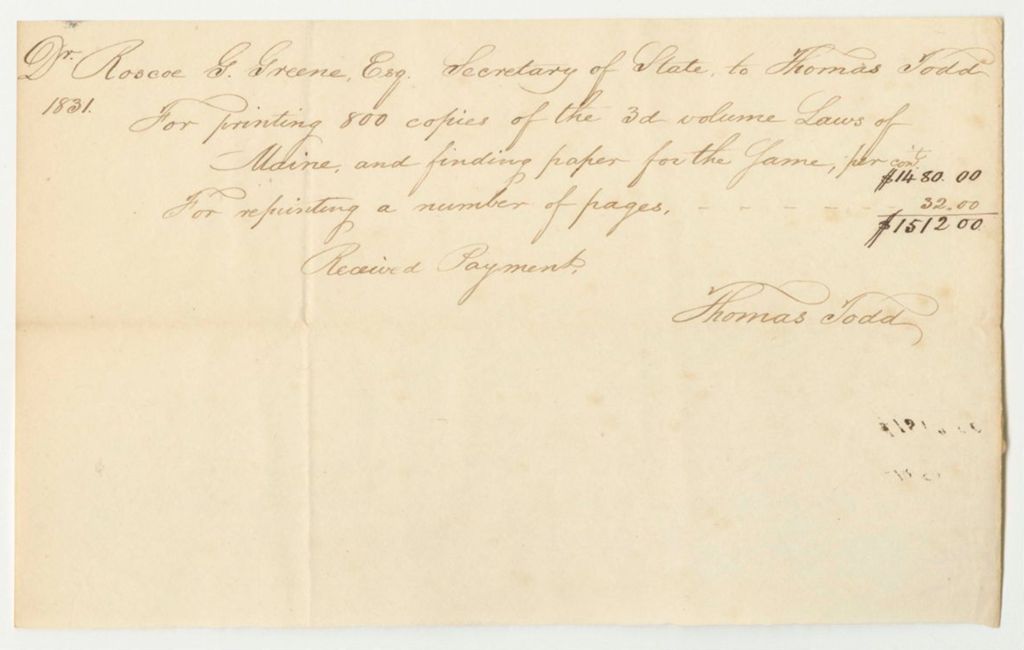 Dr. Roscoe G. Greene, Esq. Secretary of State, to Thomas Todd
1831.
For printing 800 copies of the 3d volume Laws of
Maine, and finding paper for the Same, per cont.
$1480.00
For reprinting a number of pages, - - - - - - 32.00
$1512 00
Received Payment,
Thomas Todd